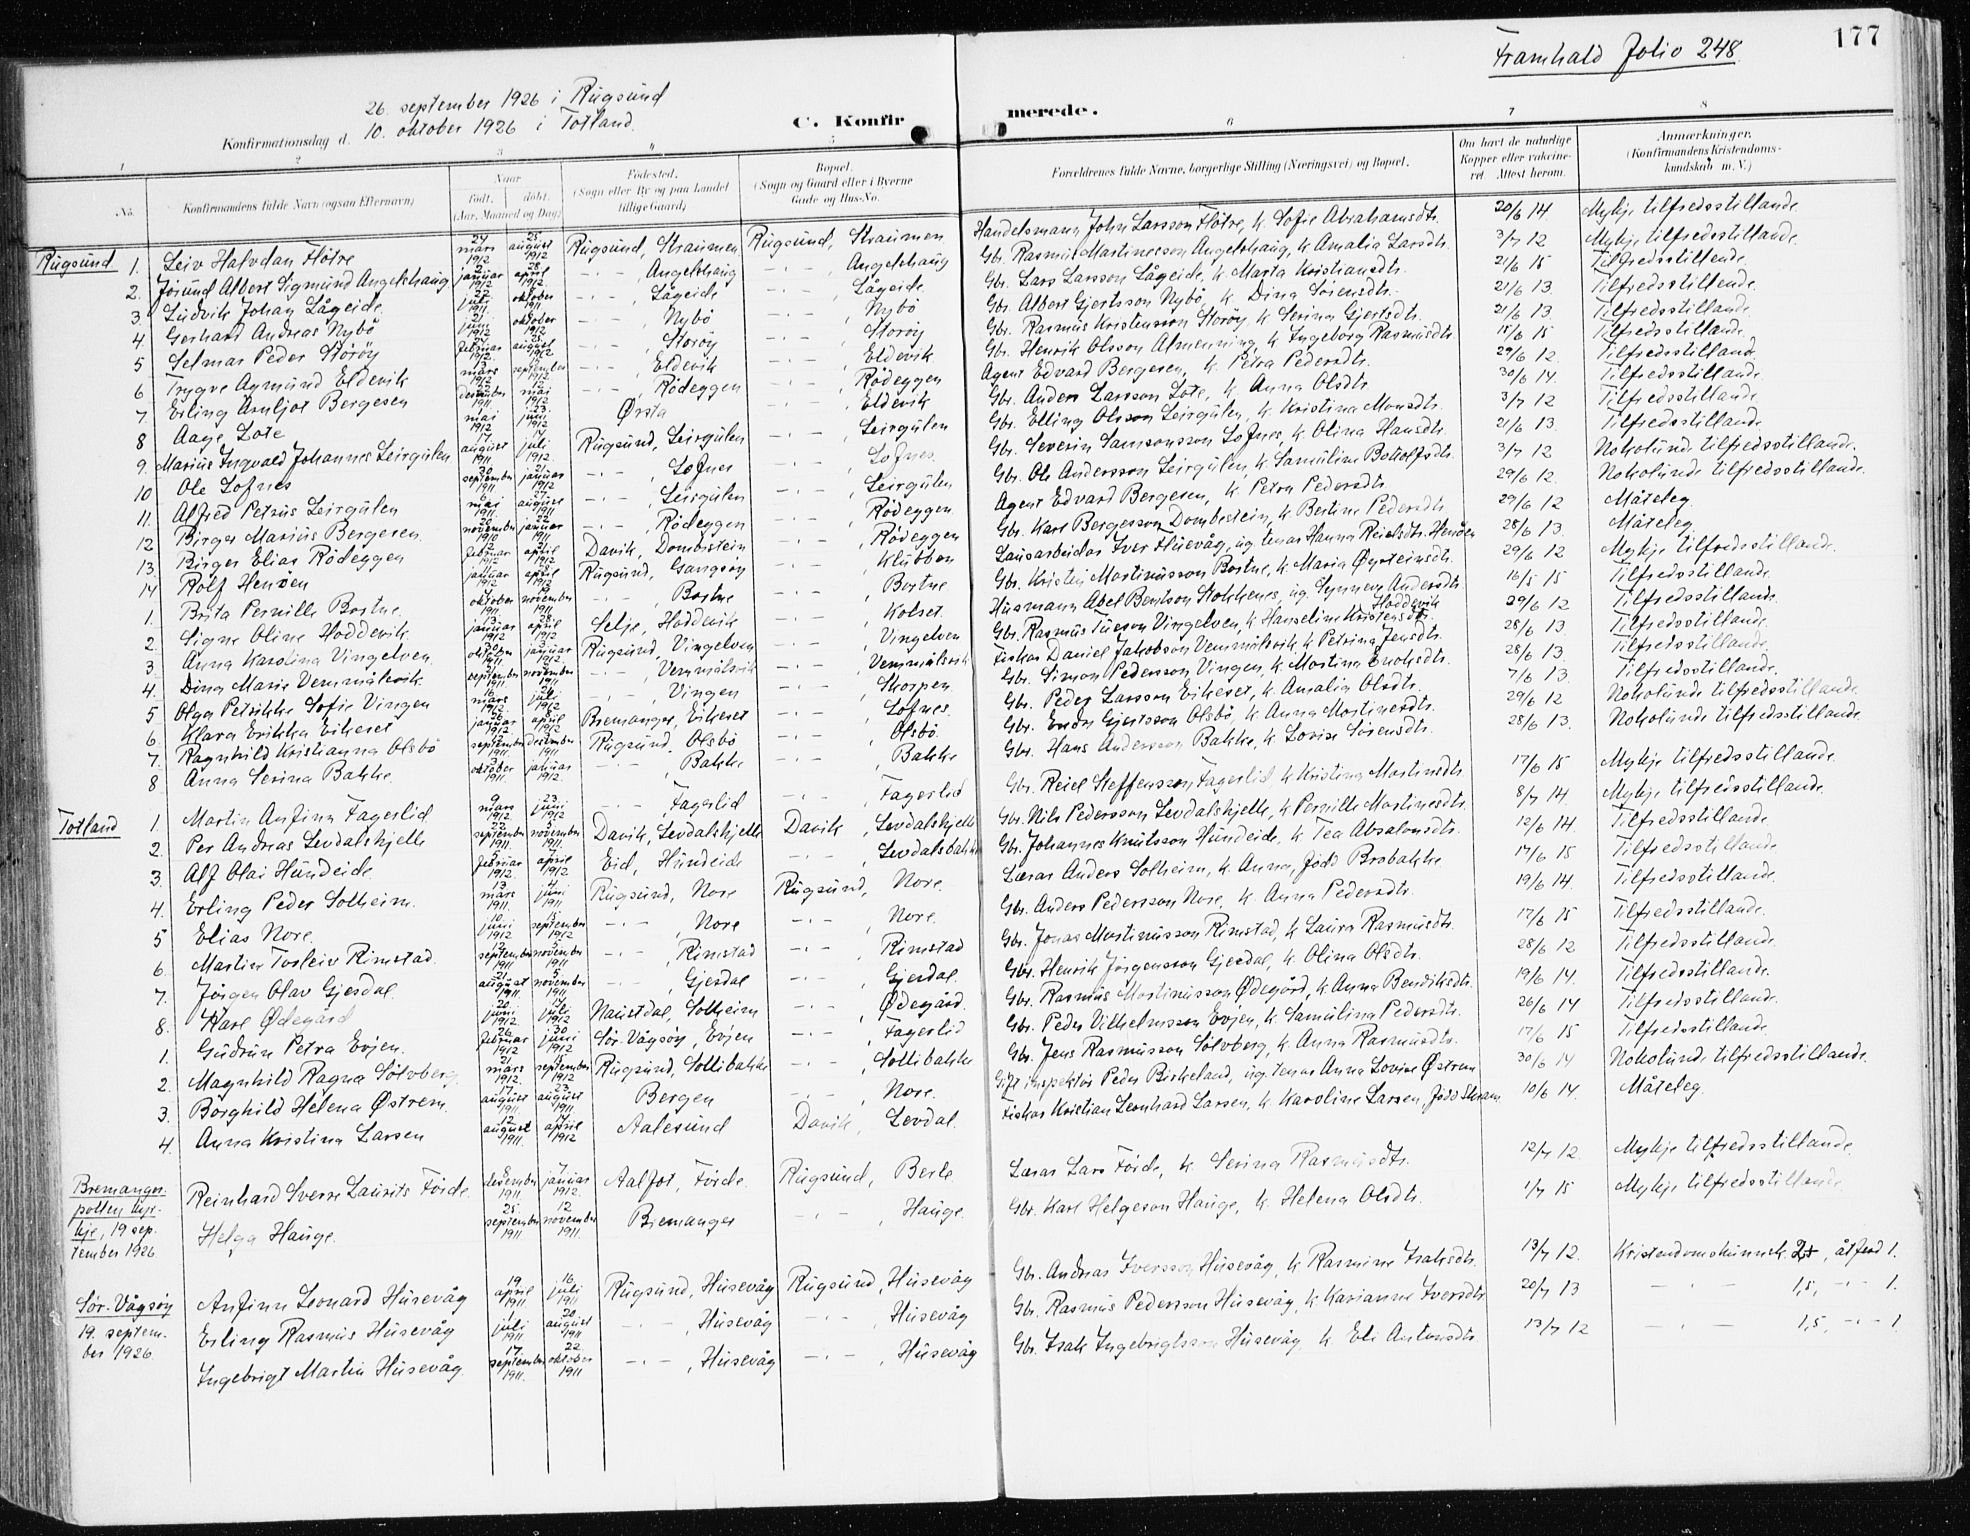 Framhald Folio 248. 177
26. september 1926 i Rugsund
Konfirmationsdag d. 10. oktober 1926 i Totland.
C. Konfirmerede.
1 2 3 4 5 6 7 8
No. Konfirmandens fulde Navn (ogsaa Efternavn) Naar født. døbt. (Aar, Maaned og Dag) Fødested. (Sogn eller By og paa Landet tillige Gaard) Bopæl. (Sogn og Gaard eller i Byerne Gade og Hus-No. Forældrenes fulde Navne, borgerlige Stilling (Næringsvei) og Bopæl. Om havt de naturlige Kopper eller vakcineret. Attest herom. Anmærkninger. (Konfirmandens Kristendomskundskab m. V.)
Rugsund 1. Leiv Halvdan Flötre 24 mars 1912 25. august 1912 Rugsund, Straumen Rugsund, Straumen Handelsmann John Larsson Flötre, k. Sofie Abrahamsdtr. 20/6 14 Mykje tilfredsstillande.
2. Jörund Albert Sigmund Angelshaug januar 1912 28. april 1912 -·- , Angelshaug -·- , Angelshaug Gbr. Rasmus Martinusson Angelshaug, k. Amalia Larsdtr. 3/7 12 Mykje tilfredsstillande.
3. Ludvik Johan Lågeide juli 1911 oktober 1911 -·- , Lågeide -·- , Lågeide Gbr. Lars Larsson Lågeide, k. Marta Kristiansdtr. 21/6 15 Tilfredsstillende.
4 Gerhard Andreas Nybö 21 juni 1912 oktober 1912 -·- , Nybö -·- , Nybö Gbr. Albert Gjertsson Nybö, k. Dina Sörensdtr. 21/6 13 Tilfredsstillende.
5 Selmar Peder Störöy februar 1912 august 1912 -·- , Storöy -·- , Storöy Gbr. Rasmus Kristensson Storöy, k. Serina Gjertsdtr. 21/6 13. Tilfredsstillande.
6 Trygve Agmund Eldevik mars 1912 september 1912 -·- , Eldevik -·- , Eldevik. Gbr. Henrik Olsson Almenning, k. Ingeborg Rasmusdtr. 15/6 15 Tilfredsstillande
7 Erling Arnljot Bergesen desember 1911 12. mai 1912 -·- , Rödeggen -·- , Rödeggen Agent Edvard Bergesen, k. Petra Pedersdtr. 29/6 12. Tilfredsstilland.
8 Aage Lote mai 1912 23. juni 1912 Ørsta -·- , Eldevik Gbr. Anders Larsson Lote, k. Anna Olsdtr. 30/6 14. Tilfredsstillande
9. Marius Ingvald Johannes Leirgulen 17 august 1911 14 juli 1912. Rugsund, Leirgulen -·- , Leirgulen Gbr. Elling Olsson Leirgulen, k. Kristina Monsdtr. 3/7 12 Tilfredsstillande.
10 Ole Lofnes 30 september 1911 21 januar 1912 -·- , Lofnes -·- , Lofnes. Gbr. Severin Samsonsson Lofnes, k. Olina Hansdtr. 21/6 13. Tilfredsstillande.
11. Alfred Petrus Leirgulen 6 mai 1911. 27. august 1911 -·- , Leirgulen -·- , Leirgulen Gbr. Ole Andersson Leirgulen, k. Samuline Botolfsdtr. 3/7 12 Nokolunde tilfredsstillande.
12 Birger Marius Bergesen 20 november 1910 22 januar 1912 -·- , Rödeggen -·- , Rödeggen. Agent Edvard Bergesen, k. Petra Pedersdtr. 29/6 12 Nokolunde tilfredsstillande.
13. Birger Elias Rödeggen februar 1912 april 1912 Davik, Dombestein -·- , Rødeggen Gbr. Karl Bergesson Dombestein, k. Berline Pedersdtr. 29/6 12 Måteleg
14 Rolf Henöen januar 1912 april 1912 Rugsund, Gangsöy -·- , Klubben Lausarbeidar Iver Husevåg, ug. tenar Hanna Reielsdtr. Henöen 28/6 13. Måteleg.
1. Brita Pernille Bortne oktober 1911. november 1911 -·- , Bortne -·- , Bortne Gbr. Kristen Martinusson Bortne, k. Maria Øysteinsdtr. 29/6 12 Mykje tilfredsstillande.
2. Signe Oline Hoddevik 13. januar 1912 28. april 1912 Selje, Hoddevik -·- , Kolset Husmann Abel Bentson Stokkenes, ug. Synneva Andersdtr. Hoddevik 16/5 15 Tilfredsstillande.
3. Anna Karolina Vingelven. oktober 1911 januar 1912. Rugsund, Vingelven -·- , Vingelven Gbr. Rasmus Tueson Vingelven, k. Hanseline Kristensdtr. 29/6 12 Tilfredsstillande.
4. Dina Marie Vemmålsvik september 1911 november 1911 -·- , Vemmålsvik -·- , Vemmålsvik Fiskar Daniel Jakobson Vemmålsvik, k. Petrina Jensdtr. 28/6 13. Tilfredsstillande.
5 Olga Petrikke Sofie Vingen 16 mars 1912. juli 1912. -·- , Vingen -·- , Skorpen Gbr. Simon Pedersson Vingen, k. Martina Enoksdtr. 28/6 13. Tilfredsstillande.
6 Klara Erikka Eikeset 26 januar 1912 april 1912 Bremanger, Eikeset -·- , Lofnes. Gbr. Peder Larsson Eikeset, k. Amalia Olsdtr. 7/6 13. Tilfredsstillande
7. Ragnhild Kristianna Olsbö september 1911 desember 1911 Rugsund, Olsbö -·- , Olsbö Gbr. Endre Gjertsson Olsbö, k. Anna Martinusdtr. 29/6 12 Nokolunde tilfredsstillande.
8 Anna Serina Bakke. 3 oktober 1911. januar 1912. -·- , Bakke -·- , Bakke Gbr. Hans Andersson Bakke, k. Lovise Sörensdtr. 28/6 13. Nokolunde tilfredsstillande.
Totland 1. Martin Anfinn Fagerlid 9 mars 1912. 23 juni 1912 -·- , Fagerlid -·- , Fagerlid Gbr. Reiel Steffensson Fagerlid, k. Kristina Martinsdtr. 17/6 15 Mykje tilfredsstillande.
2. Per Andreas Levdalskjelle 22 september 1911. november 1911. Davik, Levdalskjelle Davik, Levdalskjelle Gbr. Nils Pedersson Levdalskjelle, k. Pernille Martinusdtr. 8/7 14 Mykje tilfredsstillande.
3. Alf Olai Hundeide februar 1912 april 1912 Eid, Hundeide -·- , Levdalsbakke Gbr. Johannes Knutsson Hundeide, k. Tea Absalonsdtr. 12/6 14 Tilfredsstillande
4. Erling Peder Solheim. 13 mars 1911. 4 juni 1911 Rugsund, Nore Rugsund, Nore. Lærar Anders Solheim, k. Anna, född Brobakke 17/6 15 Tilfredsstillande
5 Elias Nore. 10. juni 1912 15 september 1912 -·- , Nore -·- , Nore. Gbr. Anders Pedersson Nore, k. Anna Pedersdtr. 19/6 14. Tilfredsstillande.
6. Martin Torleiv Rimstad. september 1911. november 1911 -·- , Rimstad -·- , Rimstad Gbr. Jonas Martinusson Rimstad, k. Laura Rasmusdtr. 17/6 15 Tilfredsstillande.
7. Jörgen Olav Gjesdal. 21 august 1911. 5 november 1911. -·- , Gjesdal -·- , Gjesdal. Gbr. Henrik Jörgensson Gjesdal, k. Olina Olsdtr. 28/6 12 Tilfredsstillande.
8. Kåre Ødegård 20. juni 1912. 14 juli 1912. Naustdal, Solheim -·- , Ødegård. Gbr. Rasmus Martinusson Ødegård, k. Anna Bendiksdtr. 19/6 14. Tilfredsstilland.
1. Gudrun Petra Evjen. 26. februar 1912 30 juni 1912 Sör-Vågsöy, Evjen -·- , Fagerlid Gbr. Peder Vilhelmsson Evjen, k. Samulina Pedersdtr. 26/6 14 Tilfredsstillande.
2. Magnhild Ragna Sölvberg 21 mars 1912. 15 september 1912 Rugsund, Sollibakke -·- , Sollibakke Gbr. Jens Rasmusson Sölvberg, k. Anna Rasmusdtr. 17/6 15 Tilfredsstillande.
3. Borghild Helena Østrem. 17 august 1911. 23. august 1911. Bergen -·- , Nore. Gift inspektör Peder Birkeland, ug. tenar Anna Lovise Østrem 30/6 14 Nokolunde tilfredsstillande.
4. Anna Kristina Larsen 12 august 1911. 14 april 1912 Aalesund Davik, Levdal. Fiskar Kristian Leonhard Larsen, k. Karoline Larsen, född Skram 10/6 14. Måteleg
Bremangerpollen kyrkje, 19 september 1926 Reinhard Sverre Laurits Förde 8 desember 1911. 7 januar 1912. Aalfot, Förde. Rugsund, Berle Lærar Lars Förde, k. Serina Rasmusdtr. 12/7 12. Mykje tilfredsstillande
Helga Hauge. 25. september 1911 12 november 1911. Bremanger -·- , Hauge. Gbr. Karl Helgeson Hauge, k. Helena Olsdtr. 1/7 15 Mykje tilfredsstillande
Sör-Vågsöy 19. september 1926 Anfinn Leonard Husevåg 19. april 1911 16 juli 1911 Rugsund, Husevåg Rugsund, Husevåg Gbr. Andreas Iversson Husevåg, k. Rasmine Isaksdtr. 13/7 12. Kristendomskunnsk. 2+, åtferd 1.
Erling Rasmus Husevåg juli 1911 20. august 1911 -·- , Husevåg -·- , Husevåg Gbr. Rasmus Pedersson Husevåg, k. Karianne Iversdtr 20/7 13 -·- 1,5, -·- 1.
Ingebrigt Martin Husevåg. 17. september 1911. 22. oktober 1911 -·- , Husevåg -·- , Husevåg Gbr. Isak Ingebrigtsson Husevåg, k. Eli Antonsdtr 13/7 12 -·- 1,5, -·- 1.